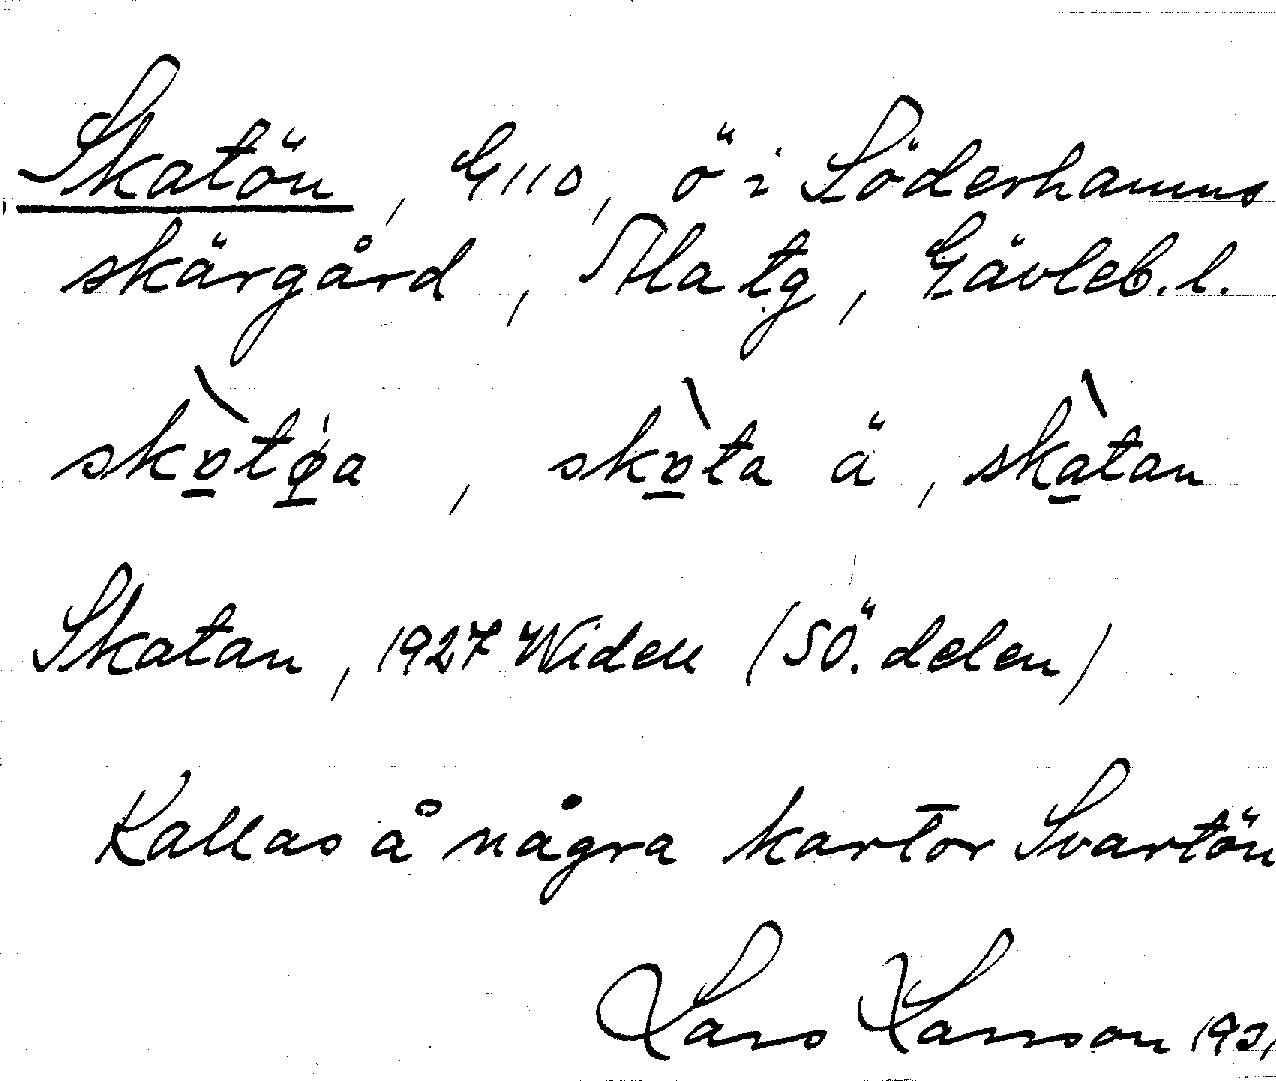 Skatön, G110, ö i Söderhamns
skärgård, Ala tg, Gävleb. l.
skòtǿa, skòta ä, skàtan
Skatan, 1927 Widell (SÖ. delen)
Kallas å några kartor Svartön
Lars Larsson 193